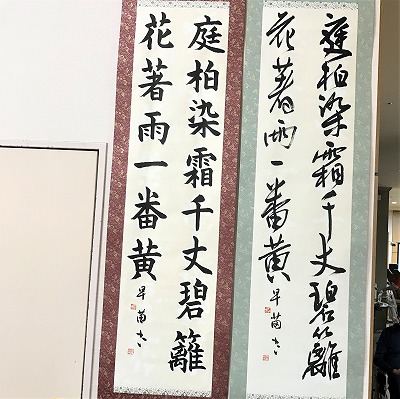 庭柏染霜千丈碧籬
花著雨一番黄
早
庭柏染霜千丈碧籬
花著雨一番黄
早